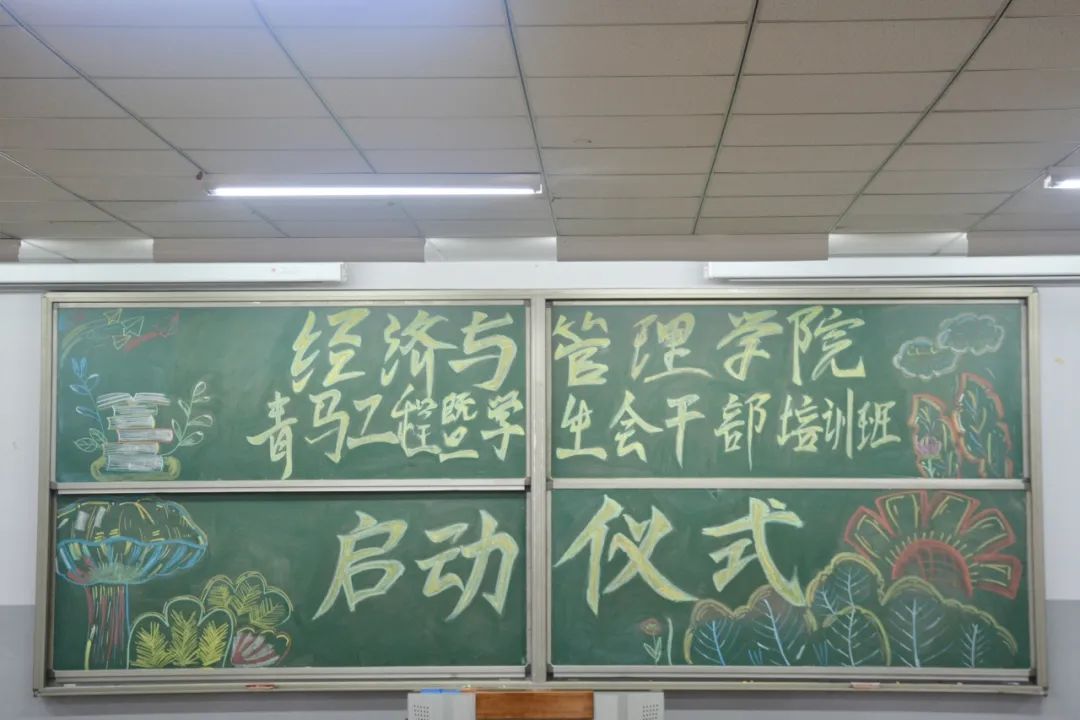 经济与管理学院
青马工程暨学生会干部培训班
启动仪式